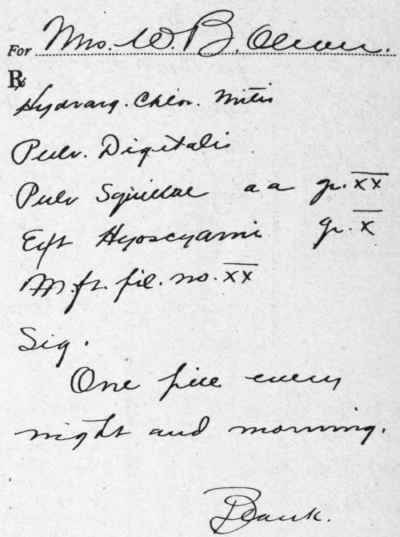 For Mrs. W. B. Oliver.
℞
Hydrarg. Chlor. Mitis
Pulv. Digitalis
Pulv Squillae aa gr. xx
Ext Hyoscyami gr. x
M. ft. pil. no. xx
Sig.
One pill every
night and morning.